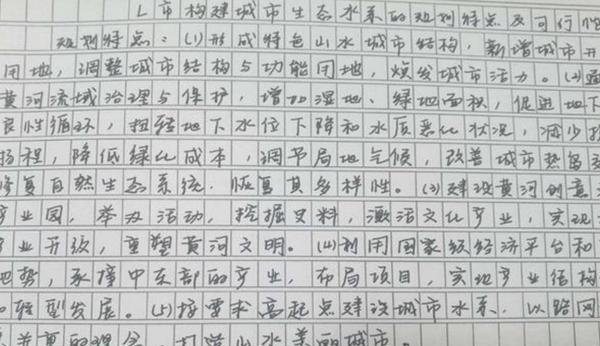 L市构建城市生态水系的规划特点及可行性
规划特点：(1)形成特色山水城市结构，新增城市开
用地，调整城市结构与功能用地，焕发城市活力。(2)
黄河流域治理与保护，增加湿地、绿地面积，促进地下
良性循环，扭转地下水位下降和水质恶化状况，减少
扬程，降低绿化成本，调节局地气候，改善城市热岛
修复自然生态系统，恢复其多样性。(3)建设黄河创意
产业园，举办活动，挖掘史料，激活文化产业，实现
业开放，重塑黄河文明。(4)利用国家级经济平台和
势，承接中东部的产业，布局项目，实现产业结构
转型发展。(5)按要求高起点建设城市水系，以路网
并重的理念，打造山水美丽城市。